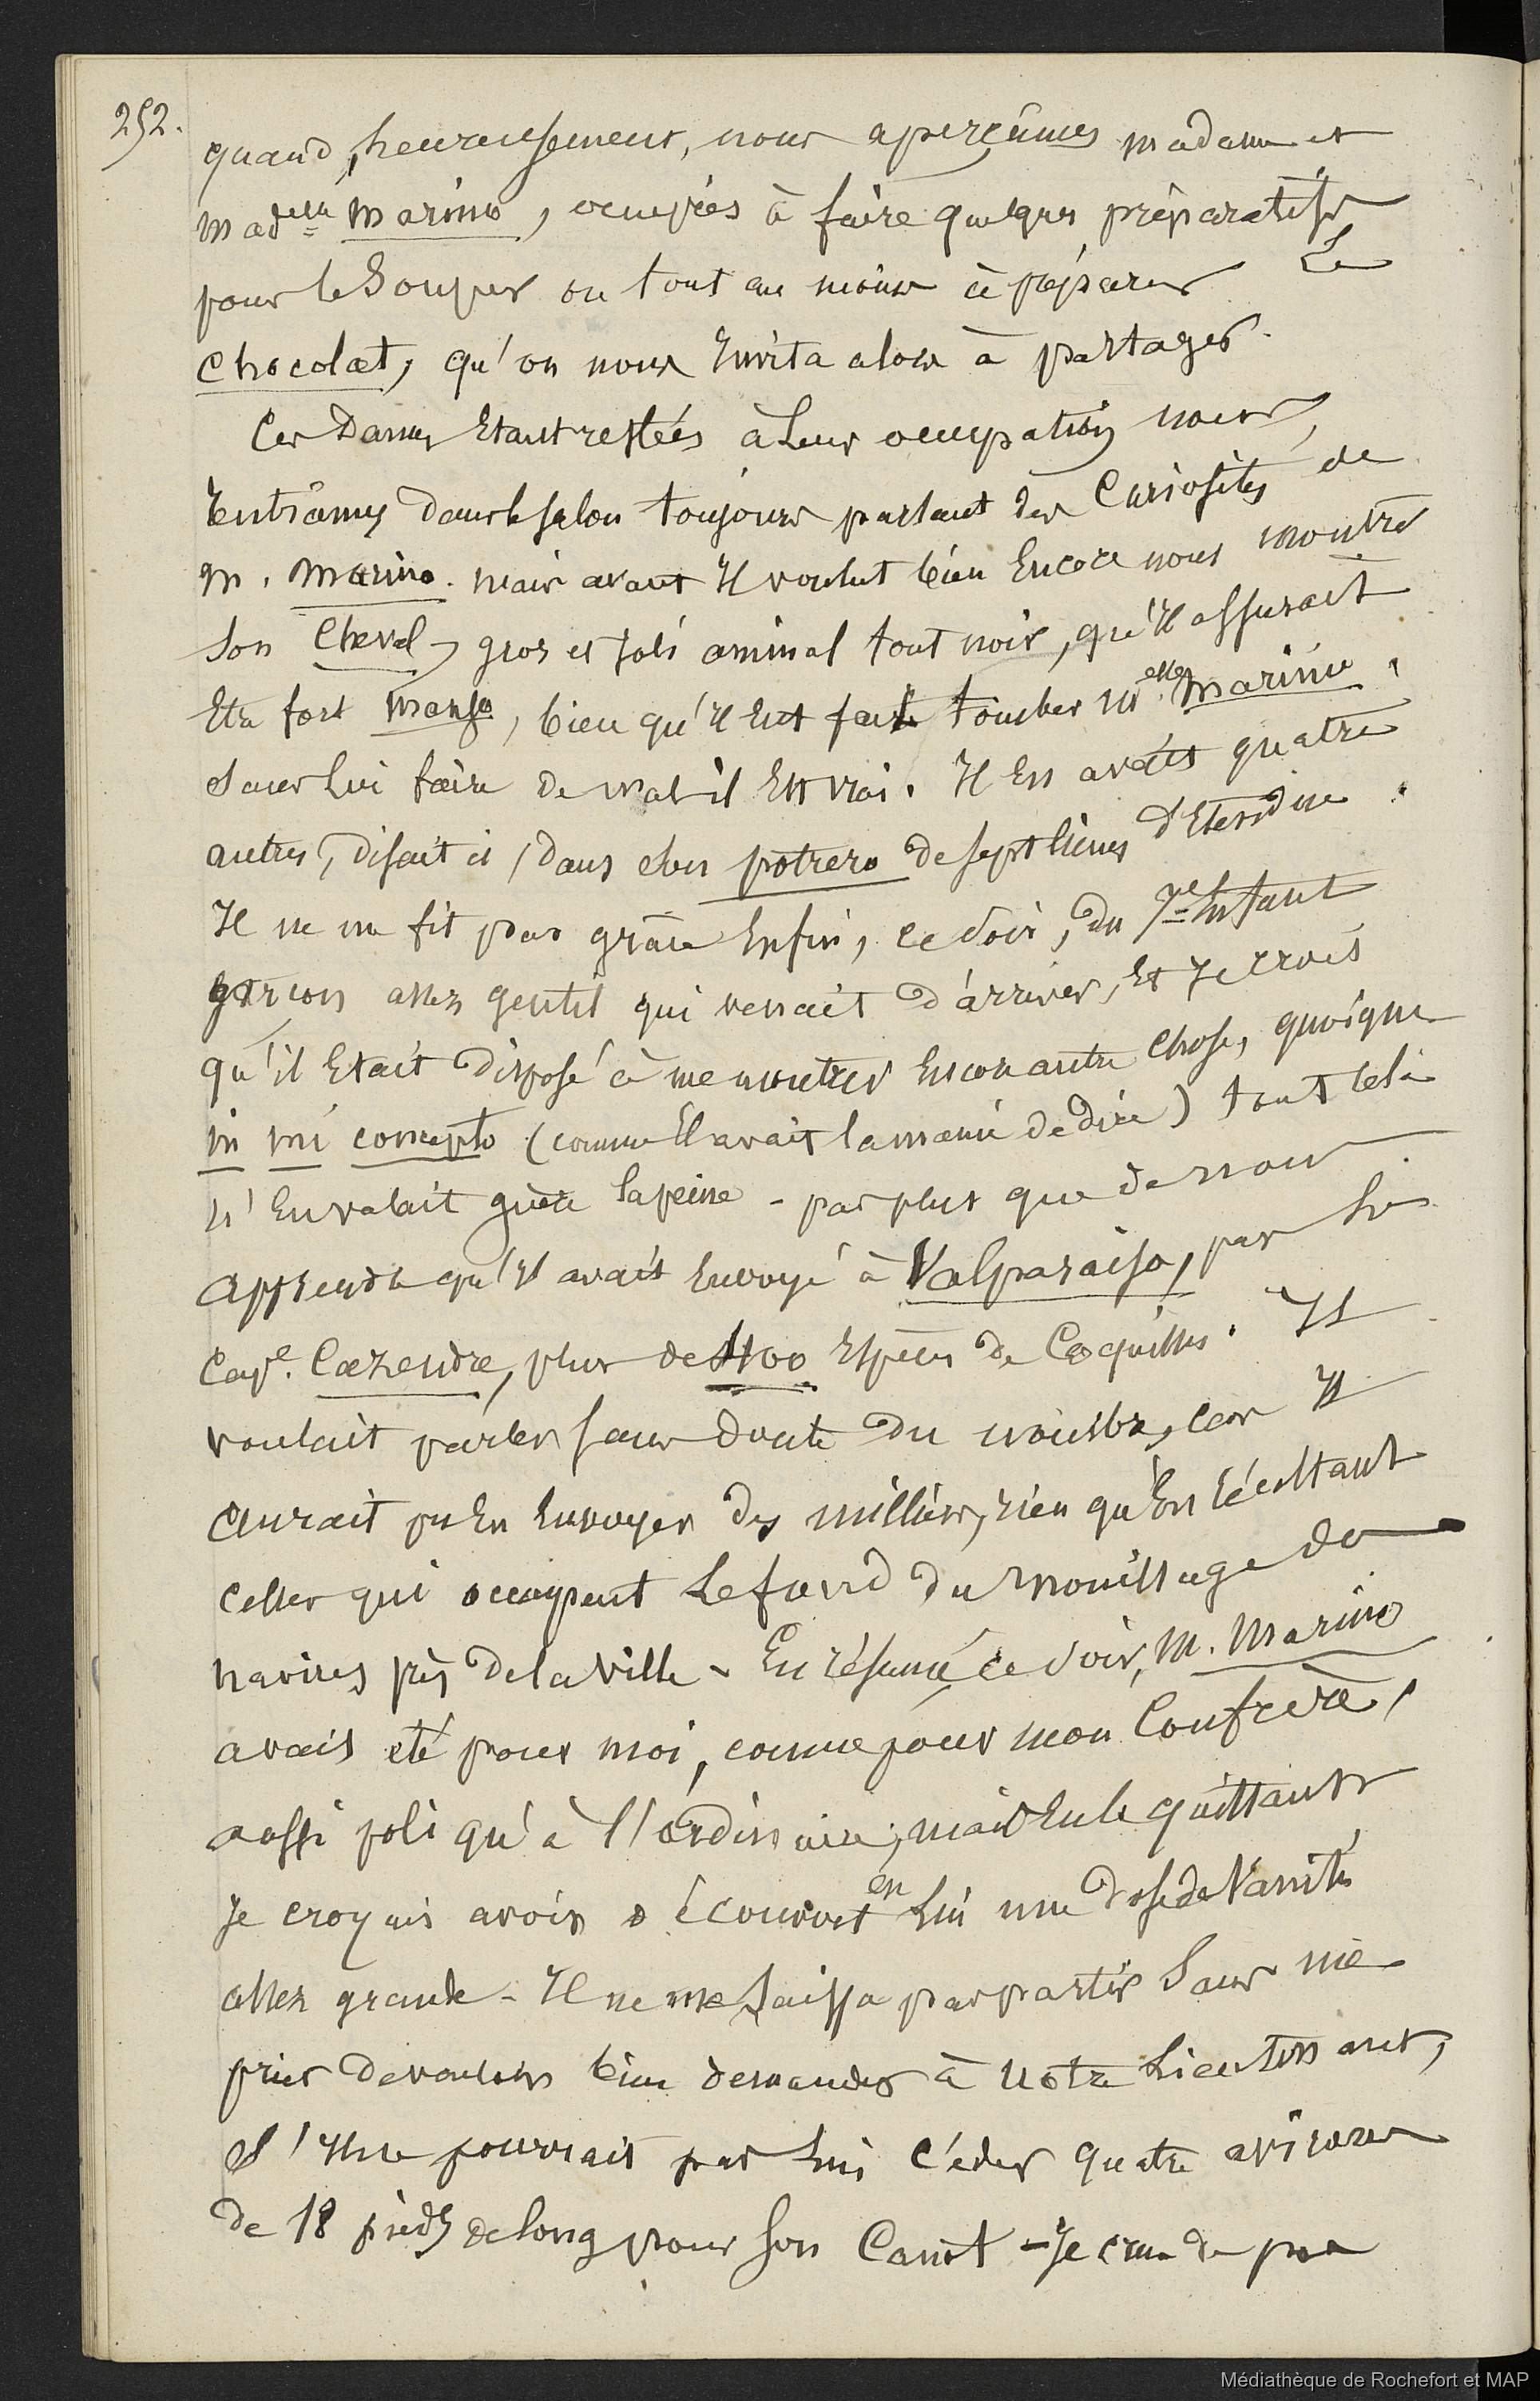 252.
quand, heureusement, nous aperçûmes madame et
Mad.elle Marino, occupées à faire quelques préparatifs
pour le Souper ou tout au moins à préparer Le
Chocolat, qu'on nous Invita alors à partager.
Ces Dames Etant restées à Leur occupation nous
Rentrâmes dans le salon toujours parlant des Curiosités de
M. Marino. mais avant Il voulut bien Encore nous montrer
Son Cheval, gros et Joli animal tout noir, qu'Il assurait
Etre fort Manso, bien qu'Il eut fait tomber Melle Marino
Sans Lui faire de mal il Est vrai. Il En avait quatre
autres, disait il, dans des potrero de sept lieues d'Etendue.
Il ne me fit pas grâce Enfin, ce Soir, du 7e Enfant
garçon assez gentil qui venait d'arriver, Et Je crois
qu'il Etait disposé à me montrer Encore autre Chose, quoique
in mi concepto (comme Il avait la manie de dire) tout cela
n'En valait guère la peine - pas plus que de nous
apprendre qu'Il avait Envoyé à Valparaiso, par Le
Cape. Cazendre, plus de 400 Espèces de Coquilles. Il
voulait parler sans doute du nombre, car Il
aurait pu En Envoyer des milliers, rien qu'En Récoltant
Celles qui occupent Le fond du mouillage des
navires près de la Ville - En résumé ce Soir, M. Marino
avait été pour moi, comme pour mon Confrère,
aussi poli qu'à l'ordinaire; mais En le quittant
Je croyais avoir découvert en Lui une dose de Vanité
assez grande - Il ne me Laissa pas partir Sans me
prier de vouloir bien demander à notre Lieutenant,
S'Il ne pourrait pas Lui Céder quatre avirons
de 18 pieds de long pour Son Canot - Je crus de pas
Médiathèque de Rochefort et MAP